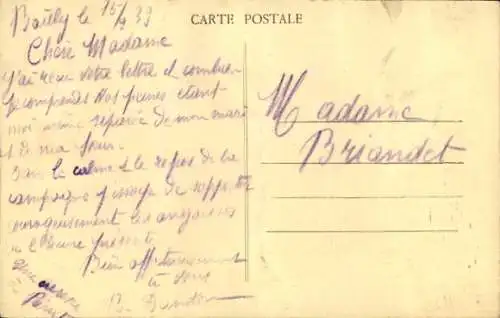 CARTE POSTALE
le 15/9 39
Chère Madame
J'ai reçu votre lettre et combien
je comprends vos peines étant
moi même séparée de mon mari
et de ma sœur.
Dans le calme et le repos de la
campagne j'essaye de supporter
courageusement les angoisses
de l'heure présente
Bien affectueusement
à vous
B.
Madame
Briandet